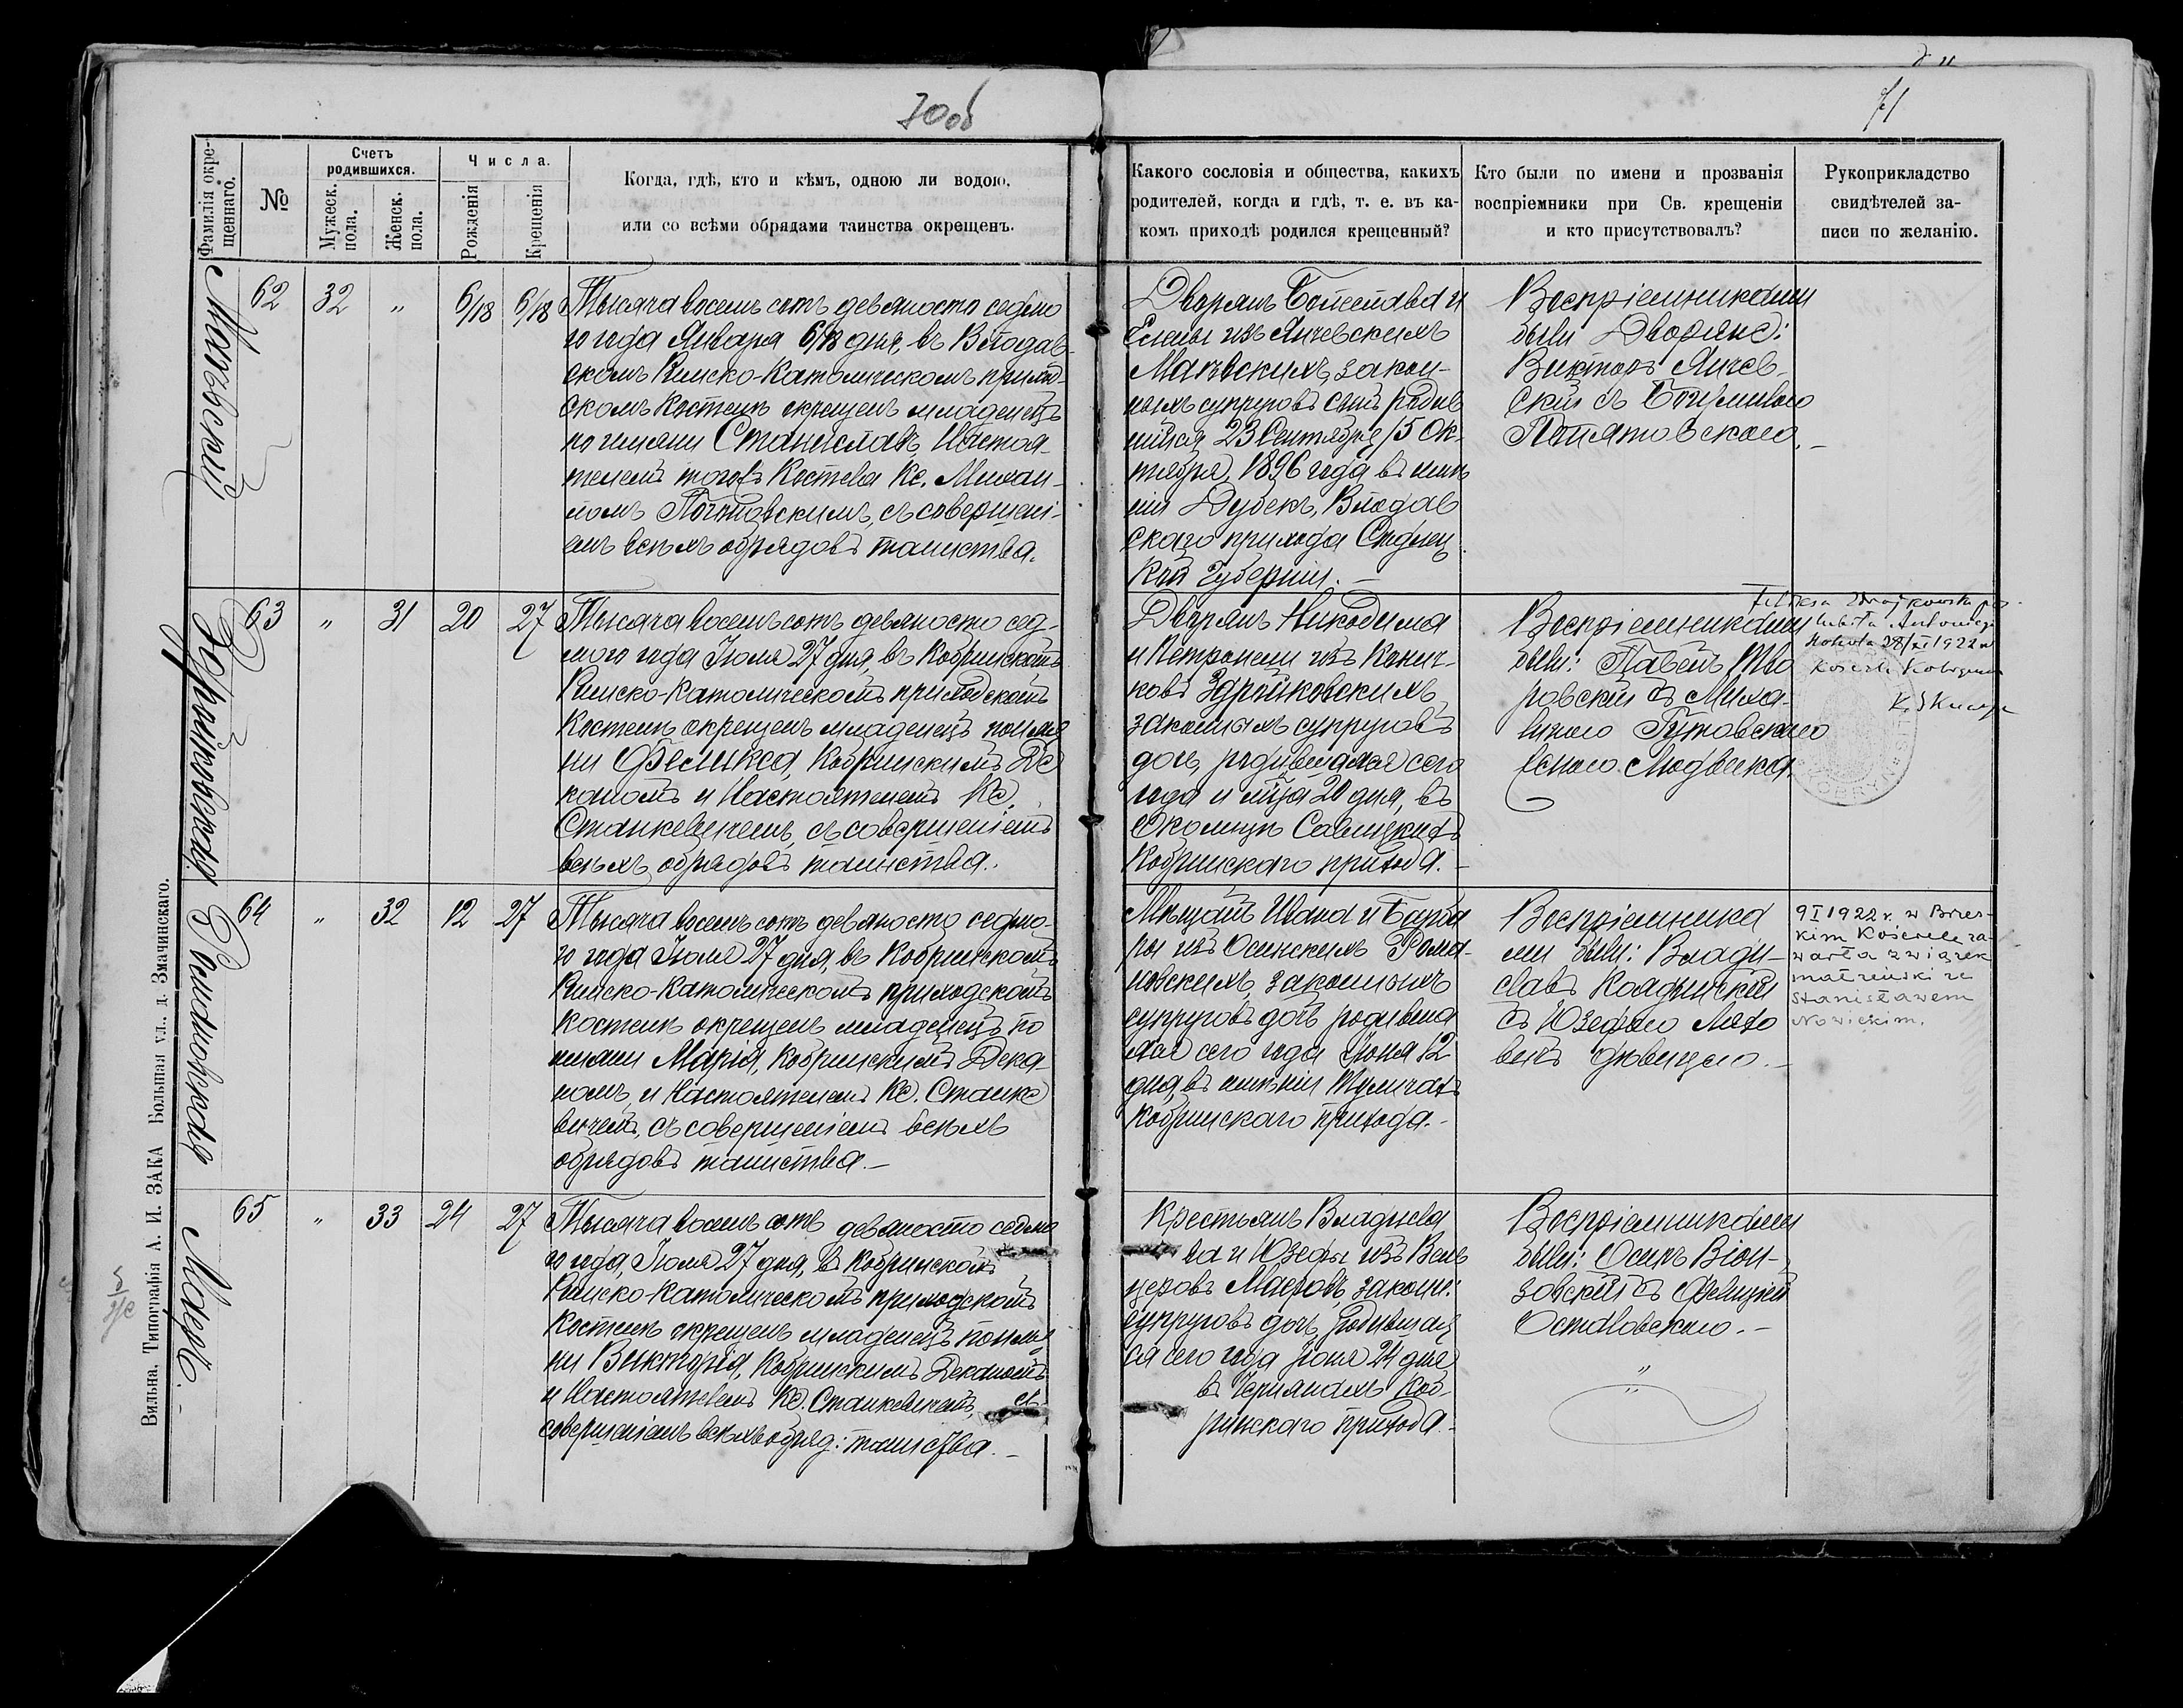 70об
71
Фамилія окрещеннаго.
№
Счетъ родившихся.
Мужеск. пола.
Женск. пола.
Числа.
Рожденія
Крещенія
Когда, гдѣ, кто и кѣмъ, одною ли водою,
или со всѣми обрядами таинства окрещенъ.
Какого сословія и общества, какихъ
родителей, когда и гдѣ, т. е. въ ка-
комъ приходѣ родился крещенный?
Кто были по имени и прозванія
воспріемники при Св. крещеніи
и кто присутствовалъ?
Рукоприкладство
свидѣтелей за-
писи по желанію.
62 32 " 6/18 6/18
Тысяча восемь сотъ девяносто седмо
го года Января 6/18 дня, въ Влодав-
скомъ Римско-Католическомъ приход-
скомъ Костелѣ окрещенъ младенецъ
по имени Станиславъ Настоя-
телемъ тогожъ Костела Кс.
съ совершені-
емъ всѣхъ обрядовъ таинства.
Дворянъ и
Елены изъ Янчевскихъ
закон-
ныхъ супруговъ сынъ родив
шійся 23 Сентября/5 Ок-
тября 1896 года въ имѣ
ніи Дубекъ, Влодав
скаго прихода Сѣдлец
кой Губерніи. –
Воспріемниками
были Дворяне:
Викторъ Янчев-
скій съ
63 " 31 20 27
Здройковская
Тысяча восемь сотъ девяносто сед-
мого года Іюля 27 дня, въ Кобринскомъ
Римско-Католическомъ приходскомъ
Костелѣ окрещенъ младенецъ по име
ни Феликса, Кобринскимъ Де
каномъ и Настоятелемъ Кс.
Станкевичемъ, съ совершеніемъ
всѣхъ обрядовъ таинства.
Дворянъ Никодима
и Петронели изъ
Здройковскихъ,
законныхъ супруговъ
дочь, родившаяся сего
года и мѣсяца 20 дня, въ
околицѣ Савицкихъ
Кобринскаго прихода. –
Воспріемниками
были: Павелъ
съ Миха-
линою Гутовскою
Feliksa Zdrojkowska
28/XI 1922 r.
64 " 32 12 27
Романовская
Тысяча восемь сотъ девяносто седмо-
го года Іюля 27 дня, въ Кобринскомъ
Римско-Католическомъ приходскомъ
Костелѣ окрещенъ младенецъ по
имени Марія, Кобринскимъ Дека-
номъ и Настоятелемъ Кс. Станке
вичемъ, съ совершеніемъ всѣхъ
обрядовъ таинства. –
Мѣщанъ Ивана и Барба
ры изъ Осинскихъ Рома-
новскихъ, законныхъ
супруговъ дочь родивша
яся сего года Іюня 12
дня, въ имѣніи
Кобринскаго прихода. –
Воспріемника
ми были: Влади-
славъ
съ Юзефою
9 I 1922 r. w Brzes-
kim Kościele za-
warła związek
małżeński ze
Stanisławem
Nowickim.
65 " 33 24 27
Тысяча восемь сотъ девяносто седмо
го года, Іюля 27 дня, въ Кобринскомъ
Римско-Католическомъ приходскомъ
Костелѣ окрещенъ младенецъ по име
ни Викторія, Кобринскимъ Деканомъ
и Настоятелемъ Кс. Станкевичемъ, съ
совершеніемъ всѣхъ обряд: таинства. –
Крестьянъ Владисла
ва и Юзефы изъ
законн:
супруговъ дочь, родившая
ся сего года Іюня 24 дня
въ Коб-
ринскаго прихода. –
Воспріемниками
были: Осипъ
съ Фелиціей
Вильна. Типографія А. И. ЗАКА Большая ул., д. Змачинскаго.